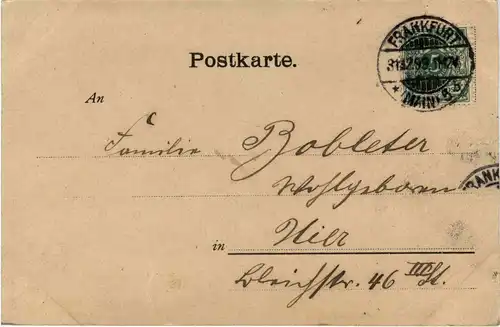 Postkarte.
FRANKFURT
31.12.99. 5-6 N.
* (MAIN) 5 *
An
Familie Bobleter
Wohlgeboren
in Hier
Bleichstr. 46 IIIt. St.